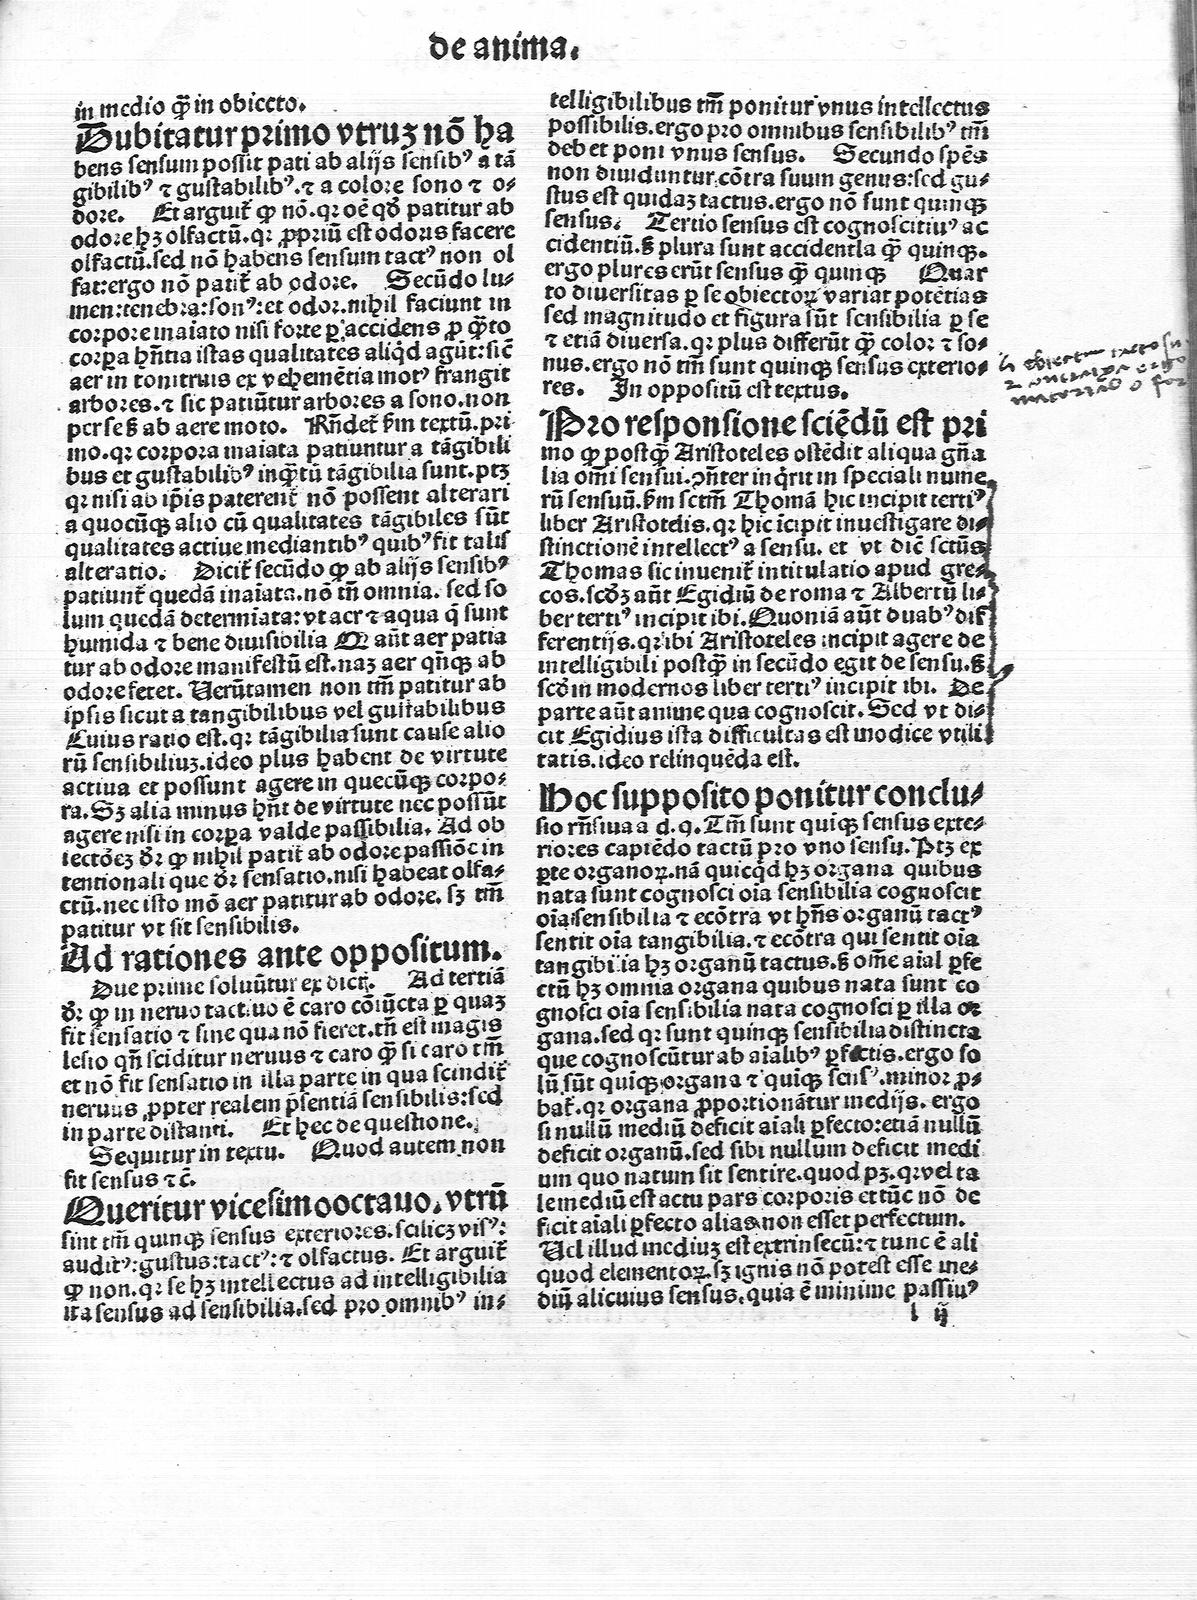 de anima.
in medio q̃ in obiecto.
Dubitatur primo vtruꝫ nō ha
bens sensum possit pati ab alijs sensibꝰ a tā
gibilibꝰ ⁊ gustabilibꝰ.⁊ a colore sono ⁊ o⸗
dore. Et arguit̃ ꝙ nō.qꝛ oē qd̓ patitur ab
odore hꝫ olfactū.qꝛ ꝓpriū est odoris facere
olfactū.sed nō habens sensum tactꝰ non ol
fat:ergo nō patit̃ ab odore. Secūdo lu⸗
men:tenebra:sonꝰ:et odor.nihil faciunt in
corpore inaīato nisi forte ꝑ accidens ꝓ q̃to
corpa hñtia istas qualitates aliq̇d agūt:sic̄
aer in tonitruis ex vehemētia motꝰ frangit
arbores.⁊ sic patiūtur arbores a sono.non
per se ß ab aere moto. Rñdet̃ ẜm textū.pri
mo.qꝛ corpora inaiata patiuntur a tāgibili
bus et gustabilibꝰ inq̃tū tāgibilia sunt.ptꝫ
qꝛ nisi ab ip̄is paterent̃ nō possent alterari
a quocūqꝫ alio cū qualitates tāgibiles sūt
qualitates actiue mediantibꝰ quibꝰ fit talis
alteratio. Dicit̃ secūdo ꝙ ab alijs sensibꝰ
patiunt̃ quedā inaīata.nō tñ omnia. sed so
lum quedā determīata:vt aer ⁊ aqua q̃ sunt
humida ⁊ bene diuisibilia Q aūt aer patia
tur ab odore manifestū est.naꝫ aer qñqꝫ ab
odore fetet. Uerūtamen non tm̄ patitur ab
ipsis sicut a tangibilibus vel gustabilibus
Cuius ratio est.qꝛ tāgibilia sunt cause alio
rū sensibiliuꝫ.ideo plus habent de virtute
actiua et possunt agere in quecūqꝫ corpo⸗
ra. Sꝫ alia minus hñt de virtute nec possūt
agere nisi in corpa valde passibilia. Ad ob
iectōeꝫ dꝛ ꝙ nihil patit̃ ab odore passiōe in
tentionali que dꝛ sensatio.nisi habeat olfa⸗
ctū.nec isto mō aer patitur ab odore. sꝫ tm̄
patitur vt sit sensibilis.
Ad rationes ante oppositum.
Due prime soluūtur ex dict̃. Ad tertiā
dꝛ ꝙ in neruo tactiuo ē caro cōiūcta ꝑ quaꝫ
fit sensatio ⁊ sine qua nō fieret.tñ est magis
lesio qñ sciditur neruus ⁊ caro q̃ si caro tm̄
et nō fit sensatio in illa parte in qua scindit̃
neruus ꝓpter realem p̄sentiā sensibilis:sed
in parte distanti. Et hec de questione.
Sequitur in textu. Quod autem non
fit sensus ⁊c̄.
Queritur vicesimooctauo.vtrū
sint tm̄ quinqꝫ sensus exteriores.scilicꝫ visꝰ:
auditꝰ:gustus:tactꝰ:⁊ olfactus. Et arguit̃
ꝙ non.qꝛ se hꝫ intellectus ad intelligibilia
ita sensus ad sensibilia.sed pro omnibꝰ in⸗
telligibilibus tm̄ ponitur vnus intellectus
possibilis.ergo pro omnibus sensibilibꝰ tm̄
debet poni vnus sensus. Secundo spēs
non diuiduntur cōtra suum genus:sed gu⸗
stus est quidaꝫ tactus.ergo nō sunt quinqꝫ
sensus. Tertio sensus est cognoscitiuꝰ ac
cidentiū.ß plura sunt accidentia q̃ quinqꝫ.
ergo plures erūt sensus q̃ quinqꝫ Quar
to diuersitas ꝑ se obiectoꝝ variat potētias
sed magnitudo et figura sūt sensibilia ꝑ se
⁊ etiā diuersa.qꝛ plus differūt q̃ color ⁊ so⸗
nus.ergo nō tm̄ sunt quinqꝫ sensus exterio⸗
res. In oppositū est textus.
Pro responsione sciēdū est pri
mo ꝙ postq̃ Aristoteles ostēdit aliqua gña
lia om̄i sensui.ↄñter inq̇rit in speciali nume
rū sensuū.ẜm sctm̄ Thomā hic incipit tertiꝰ
liber Aristotelis.qꝛ hic īcipit inuestigare di⸗
stinctionē intellectꝰ a sensu. et vt dic̄ sctūs
Thomas sic inuenit̃ intitulatio apud gre⸗
cos.scd̓ꝫ aūt Egidiū de roma ⁊ Albertū li⸗
ber tertiꝰ incipit ibi.Quoniā aūt duabꝰ dif
ferentijs.qꝛ ibi Aristoteles incipit agere de
intelligibili postq̃ in secūdo egit de sensu.ß
scd̓m modernos liber tertiꝰ incipit ibi. De
parte aūt anime qua cognoscit. Sed vt di⸗
cit Egidius ista difficultas est modice vtili
tatis.ideo relinquēda est.
Hoc supposito ponitur conclu⸗
sio rñsiua a d.q.Tm̄ sunt quiqꝫ sensus exte⸗
riores capiēdo tactū pro vno sensu. Ptꝫ ex
ꝑte organoꝝ.nā quicq̇d hꝫ organa quibus
nata sunt cognosci oīa sensibilia cognoscit
oīa sensibilia ⁊ ecōtra vt hñs organū tactꝰ
sentit oīa tangibilia.⁊ ecōtra qui sentit oīa
tangibilia hꝫ organū tactus.ß om̄e aīal ꝑfe
ctū hꝫ omnia organa quibus nata sunt co
gnosci oīa sensibilia nata cognosci ꝑ illa or
gana.sed qꝛ sunt quinqꝫ sensibilia distincta
que cognoscūtur ab aīalibꝰ ꝑfectis.ergo so
lū sūt quiqꝫ organa ⁊ quiqꝫ sensꝰ.minor ꝓ⸗
bat̃.qꝛ organa ꝓportionātur medijs. ergo
si nullū mediū deficit aīali ꝑfecto:etiā nullū
deficit organū.sed sibi nullum deficit medi
um quo natum sit sentire.quod pꝫ.qꝛ vel ta
le mediū est actu pars corporis et tūc nō de
ficit aīali ꝑfecto alias non esset perfectum.
Uel illud mediuꝫ est extrinsecū:⁊ tunc ē ali
quod elementoꝝ.sꝫ ignis nō potest esse me⸗
diū alicuius sensus.quia ē minime passiuꝰ
l ij